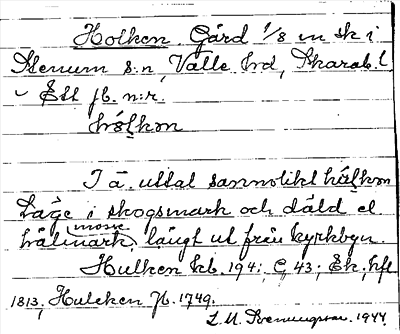 Holken. Gård 1/8 m sk i
Stenum s:n, Valle hd, Skarab. l.
Ett jb. n:r.
hɔ́lkən
I ä. uttal sannolikt hɷ́lkən
Läge i skogsmark och däld el
mosse
hålmark, långt ut från kyrkbyn.
Hulken kb. 194; C, 43; Ek. kfl
1813, Hulcken jb. 1749.
L. M. Svenungsson. 1944.